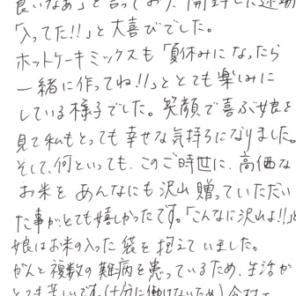 良いなあ」と言っており、開封した途端
「入ってた!!」と大喜びでした。
ホットケーキミックスも「夏休みになったら
一緒に作ってね!!」ととても楽しみに
している様子でした。笑顔で喜ぶ娘を
見て私もとっても幸せな気持ちになりました。
そして、何といっても、このご時世に、高価な
お米を あんなにも沢山 贈っていただい
た事が、とても嬉しかったです。「こんなに沢山よ!!」と
娘はお米の入った袋を抱えていました。
がんと複数の難病を患っているため、生活が
とても苦しいです。(十分に働けないため)